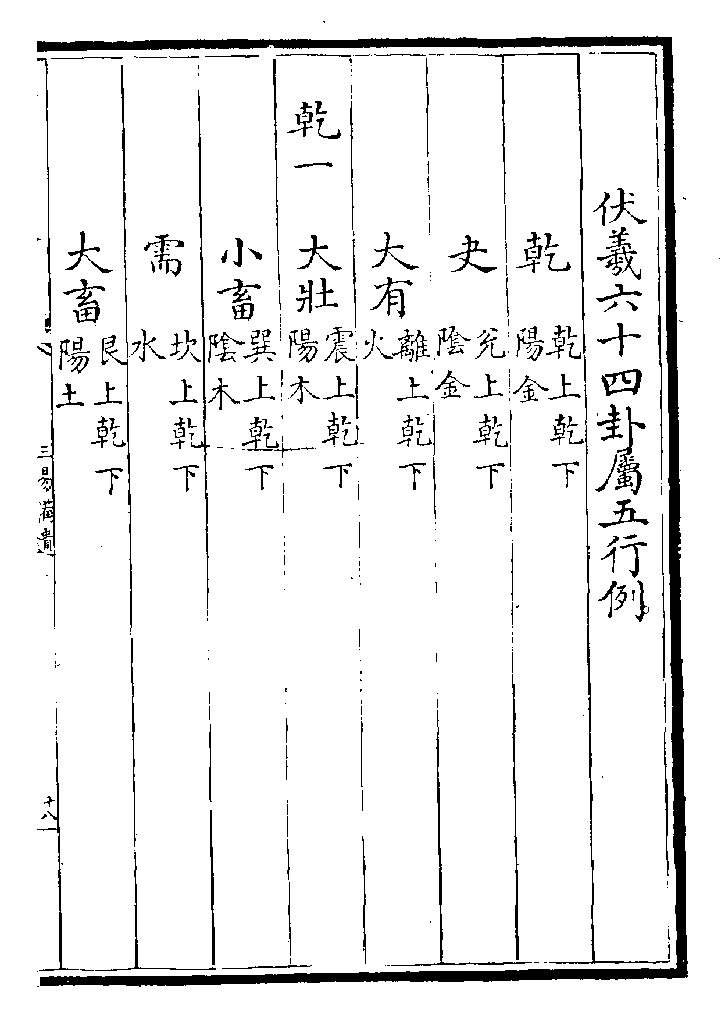 伏羲六十四卦屬五行例
乾 乾上乾下 陽金
夬 兊上乾下 陰金
大有 離上乾下 火
乾一 大壯 震上乾下 陽木
小畜 巽上乾下 陰木
需 坎上乾下 水
大畜 艮上乾下 陽土
三易備遺
十八